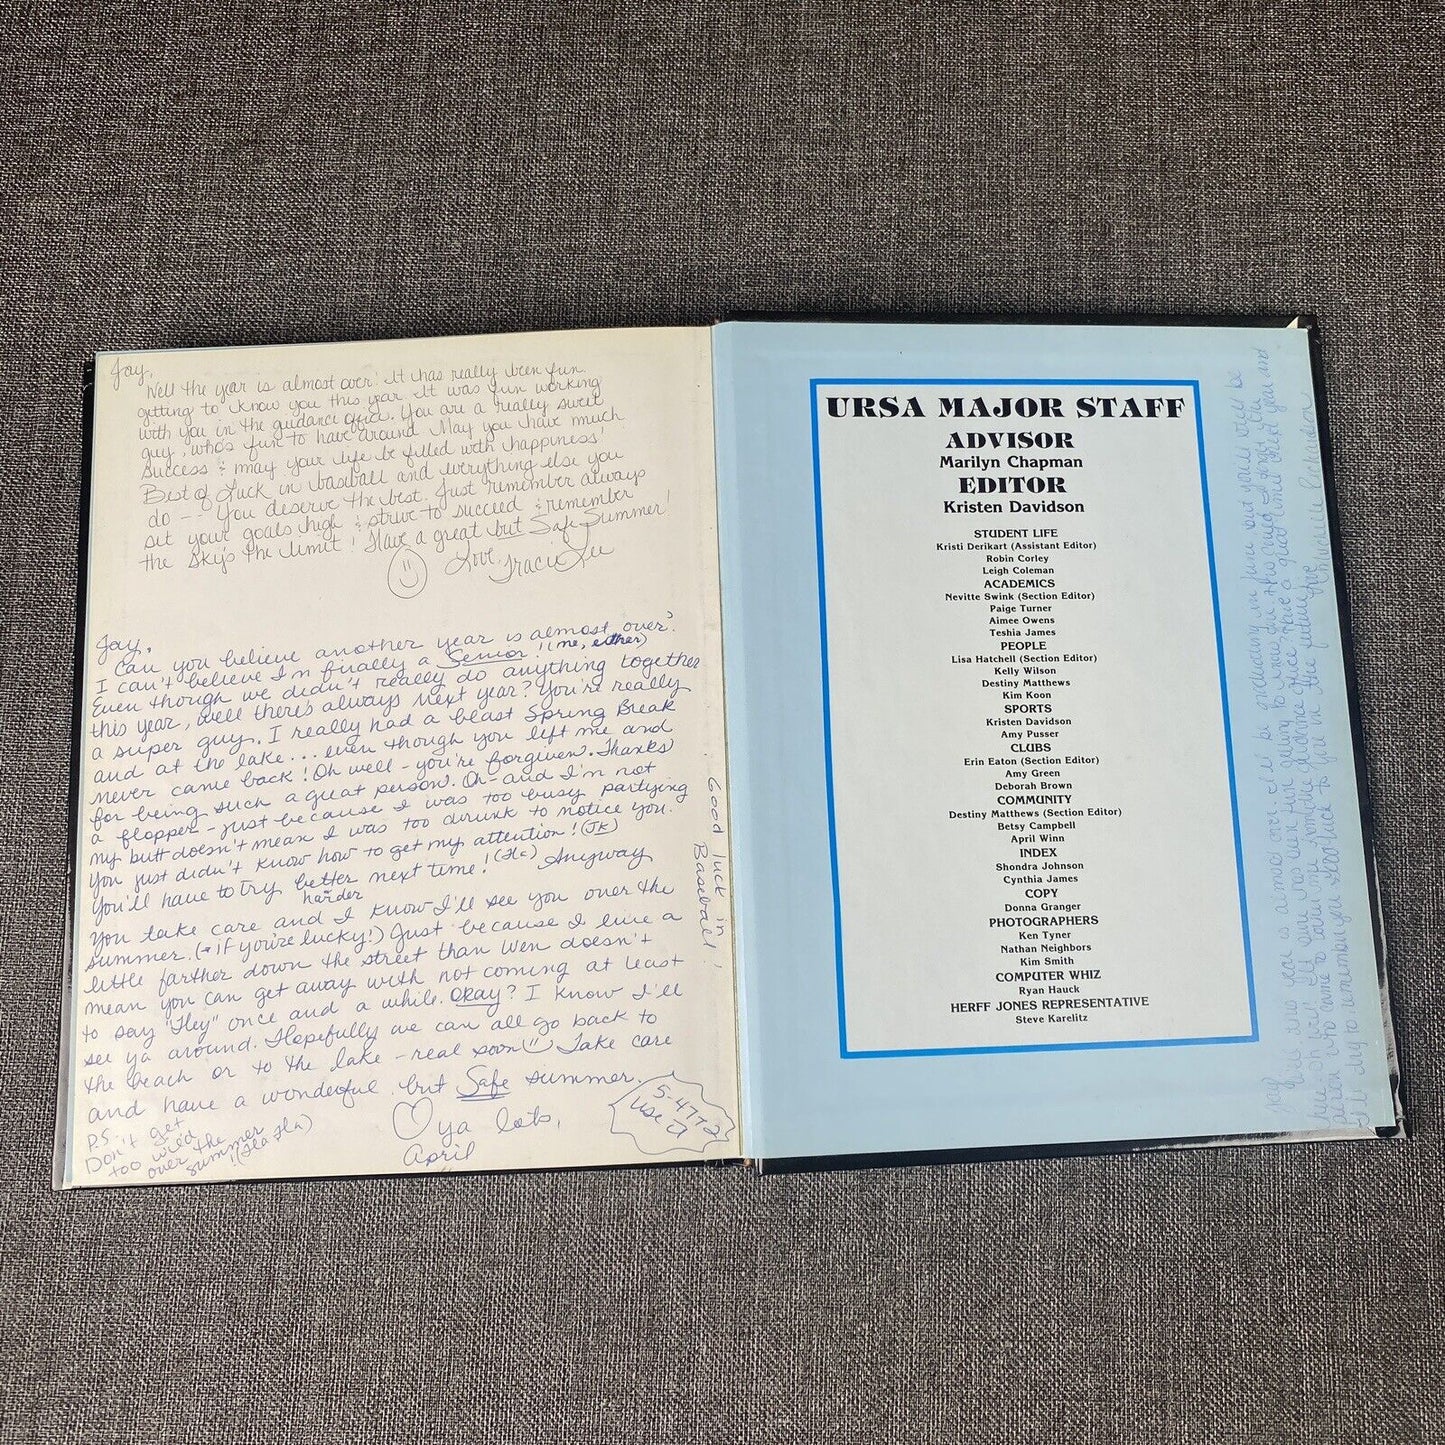 Jay,
Well the year is almost over! It has really been fun
getting to know you this year. It was fun working
with you in the guidance office. You are a really sweet
guy, who's fun to have around. May you have much
success & may your life be filled with happiness!
Best of Luck in baseball and everything else you
do -- You deserve the best. Just remember always
set your goals high & strive to succeed & remember
the sky's the limit! Have a great but Safe Summer!
Love, Tracie Lee
Jay,
Can you believe another year is almost over?
I can't believe I'm finally a Senior! (me, either)
Even though we didn't really do anything together
this year, well there's always next year? You're really
a super guy. I really had a blast Spring Break
and at the lake... even though you left me and
never came back! Oh well - you're forgiven. Thanks
for being such a great person. Oh - and I'm not
a flopper - just because I was too busy partying
my butt doesn't mean I was too drunk to notice you.
You just didn't know how to get my attention! (JK)
You'll have to try better next time! (Ha) Anyway
harder
You take care and I know I'll see you over the
summer. (* if you're lucky!) Just because I live a
little farther down the street than Wen doesn't
mean you can get away with not coming at least
to say "Hey" once and a while. Okay? I know I'll
see ya around. Hopefully we can all go back to
the beach or to the lake - real soon Take care
and have a wonderful but Safe summer.
ya lots,
April
P.S.
Don't get
too wild
over the
summer
!(Ha Ha)
5-4772
Use it
Good luck in
Baseball!
URSA MAJOR STAFF
ADVISOR
Marilyn Chapman
EDITOR
Kristen Davidson
STUDENT LIFE
Kristi Derikart (Assistant Editor)
Robin Corley
Leigh Coleman
ACADEMICS
Nevitte Swink (Section Editor)
Paige Turner
Aimee Owens
Teshia James
PEOPLE
Lisa Hatchell (Section Editor)
Kelly Wilson
Destiny Matthews
Kim Koon
SPORTS
Kristen Davidson
Amy Pusser
CLUBS
Erin Eaton (Section Editor)
Amy Green
Deborah Brown
COMMUNITY
Destiny Matthews (Section Editor)
Betsy Campbell
April Winn
INDEX
Shondra Johnson
Cynthia James
COPY
Donna Granger
PHOTOGRAPHERS
Ken Tyner
Nathan Neighbors
Kim Smith
COMPUTER WHIZ
Ryan Hauck
HERFF JONES REPRESENTATIVE
Steve Karelitz
Jay
this year is almost over
have a great time next year and
good luck to you in the future